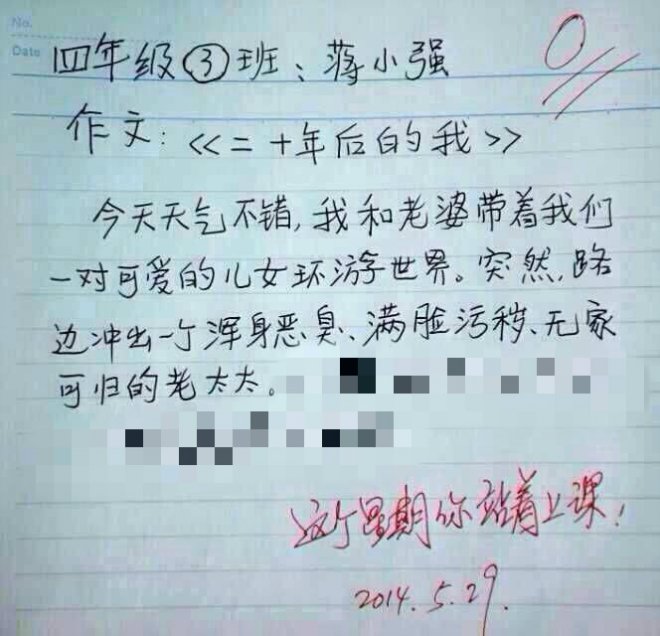 No.
Date
四年级③班：蒋小强
作文：《二十年后的我》
今天天气不错，我和老婆带着我们
一对可爱的儿女环游世界。突然，路
边冲出一个浑身恶臭、满脸污秽、无家
可归的老太太。
这个星期你站着上课！
2014.5.29.